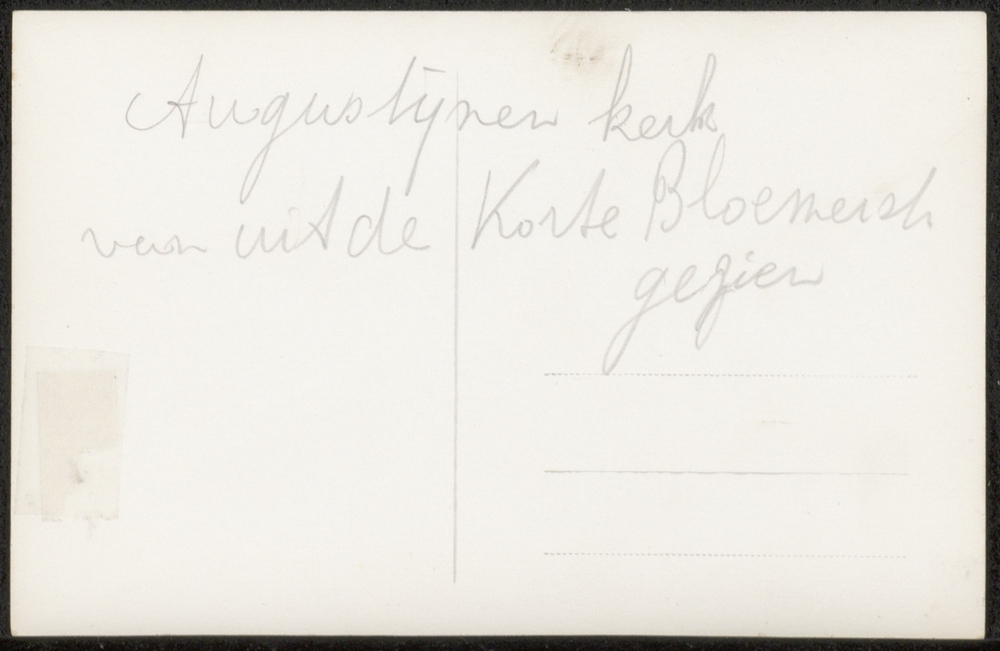 Augustijnen kerk
van uit de Korte Bloemerstr
gezien